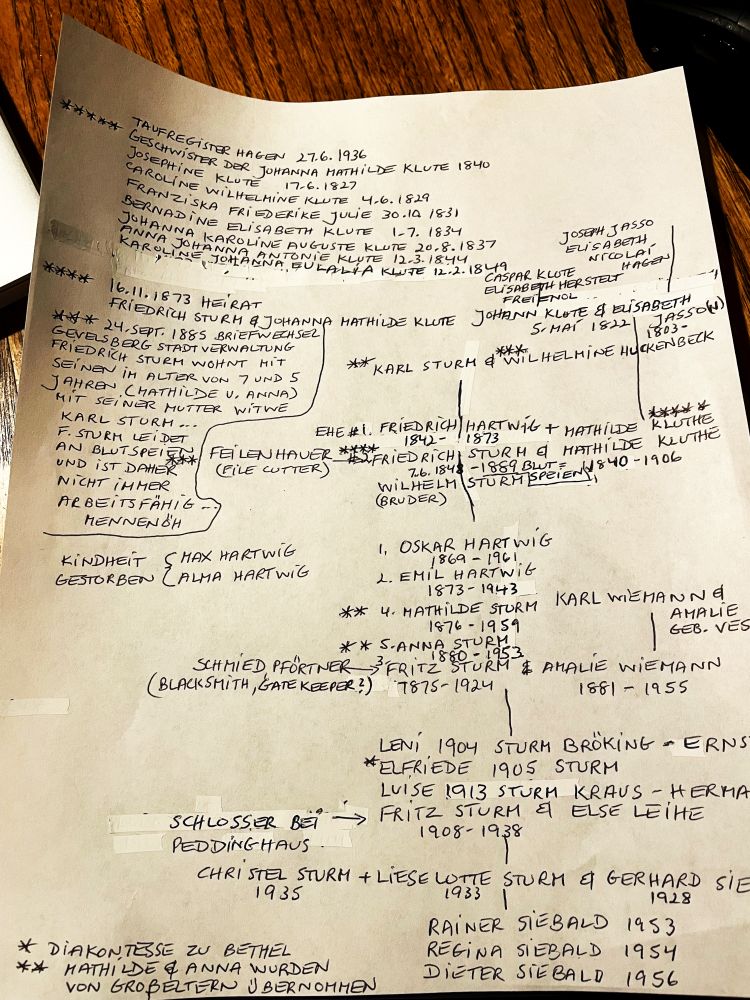 ***** TAUFREGISTER HAGEN 27.6.1936
GESCHWISTER DER JOHANNA MATHILDE KLUTE 1840
JOSEPHINE KLUTE 17-6.1827
CAROLINE WILHELMINE KLUTE 4-6.1829
FRANZISKA FRIEDERIKE JULIE 30.10 1831
BERNADINE ELISABETH KLUTE 1-7. 1834
JOHANNA KAROLINE AUGUSTE KLUTE 20.8.1837
ANNA JOHANNA ANTONIE KLUTE 12-3.1844
KAROLINE JOHANNA EULALIA KLUTE 12.2.1849
JOSEPH JASSO
ELISABETH
NICOLAÍ
HAGEN
CASPAR KLOTE
ELISABETH HERSTELT
FREIENOL
**** 16.11.1873 HEIRAT
FRIEDRICH STURM & JOHANNA MATHILDE KLUTE
JOHANN KLOTE & ELISABETH
5. MAI 1822
JASSO(N)
1803-
*** 24. SEPT. 1885 BRIEFWECHSEL
GEVELSBERG STADTVERWALTUNG
FRIEDRICH STURM WOHNT MIT
SEINEN IM ALTER VON 7 UND 5
JAHREN (MATHILDE U. ANNA)
MIT SEINER MUTTER WITWE
KARL STURM ...
F. STURM LEIDET
AN BLUTSPEIEN
*** UND IST DAHER
NICHT IMMER
ARBEITSFÄHIG ...
MENNENÖH
** KARL STURM & *** WILHELMINE HUCKENBECK
EHE #1. FRIEDRICH HARTWIG + MATHILDE KLUTHE *****
1842- 1873
FEILENHAUER
(FILE CUTTER)
**** FRIEDRICH STURM & MATHILDE KLUTHE
7.6.1848 -1889 BLUT= 1840-1906
WILHELM STURM SPEIEN
(BRUDER)
KINDHEIT { MAX HARTWIG
GESTORBEN { ALMA HARTWIG
1. OSKAR HARTWIG
1869-1961
2. EMIL HARTWIG
1873-1943
** 4. MATHILDE STURM
1876-1959
** 5. ANNA STURM
1880-1953
KARL WIEMANN &
AMALIE
GEB. VES
SCHMIED, PFÖRTNER → 3. FRITZ STURM & AMALIE WIEMANN
(BLACKSMITH, GATEKEEPER?) 1875-1924 1881-1955
LENI 1904 STURM BRÖKING - ERNS
* ELFRIEDE 1905 STURM
LUISE 1913 STURM KRAUS - HERMA
SCHLOSSER BEI → FRITZ STURM & ELSE LEIHE
PEDDINGHAUS 1908-1938
CHRISTEL STURM + LIESELOTTE STURM & GERHARD SIE
1935 1933 1928
RAINER SIEBALD 1953
REGINA SIEBALD 1954
DIETER SIEBALD 1956
* DIAKONTESSE ZU BETHEL
** MATHILDE & ANNA WURDEN
VON GROßELTERN ÜBERNOMMEN